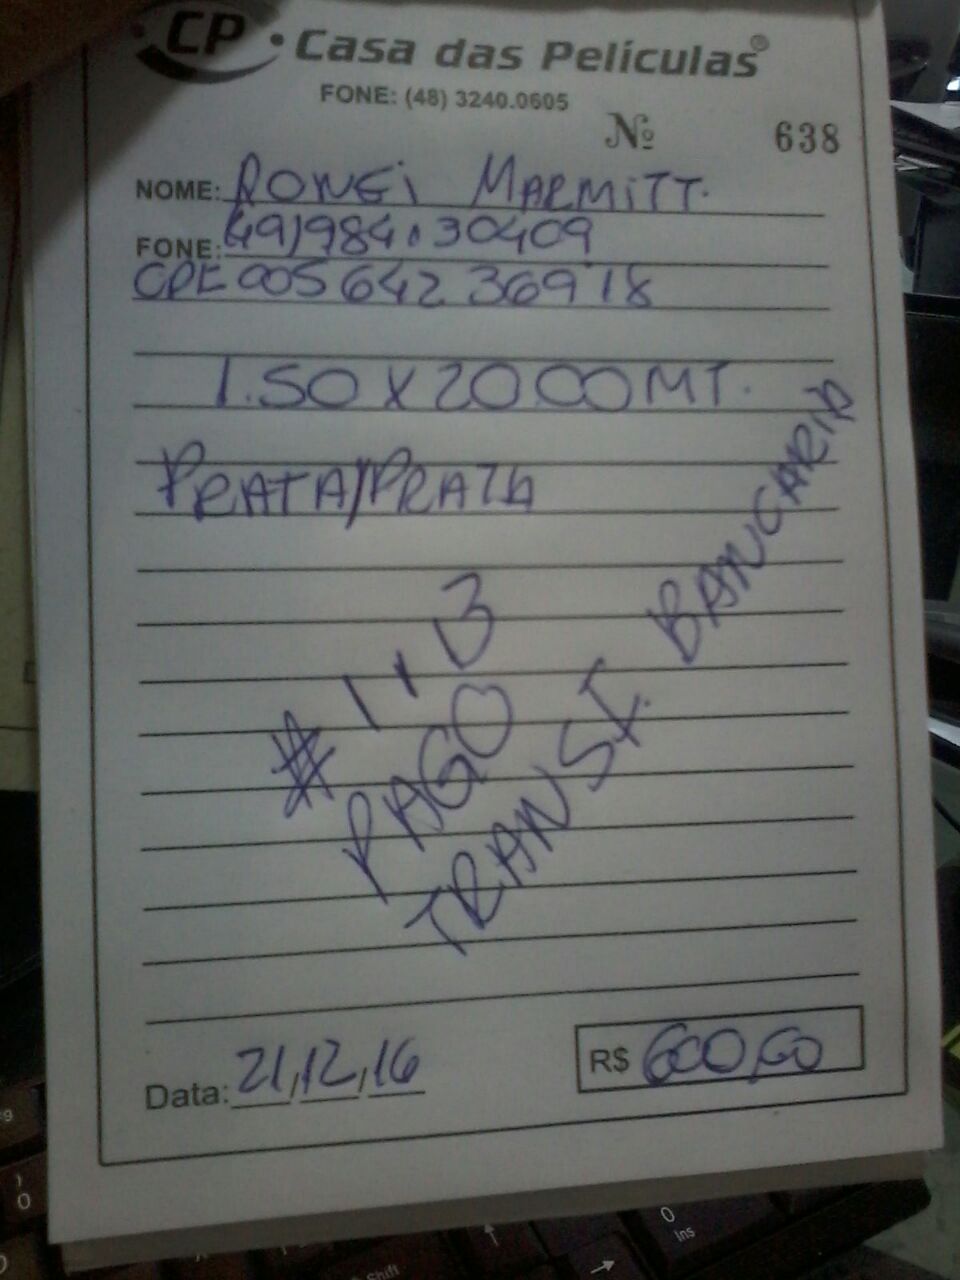 CP • Casa das Películas®
FONE: (48) 3240.0605
Nº 638
NOME: RONEI MARMITT.
FONE: (49)984.30409
CPF 005 642 369 18
1.50 X 20.00 MT.
PRATA/PRATA
PAGO
TRANSF. BANCARIA
Data: 21,12,16
R$ 600,00
9
)
0
Shift
0
Ins